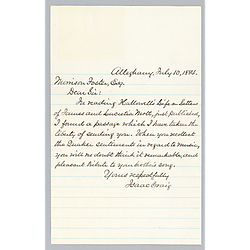 Allegheny, July 10, 1884.
Morrison Foster, Esq.
Dear Sir:
In reading Hallowell's Life & Letters
of James and Lucretia Mott, just published,
I found a passage which I have taken the
liberty of sending you. When you recollect
the Quaker sentiments in regard to music,
you will no doubt think it remarkable, and
pleasant tribute to your brother's song.
Yours respectfully
Isaac Craig